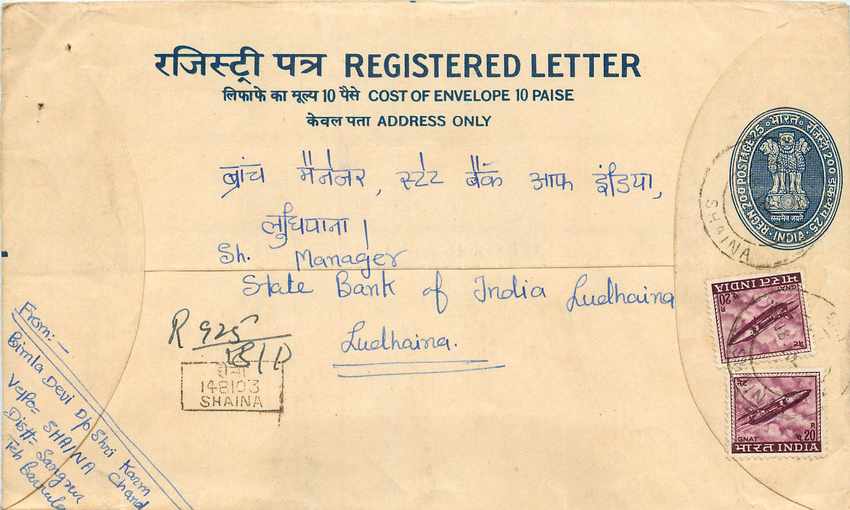 रजिस्ट्री पत्र REGISTERED LETTER
लिफाफे का मूल्य 10 पैसे COST OF ENVELOPE 10 PAISE
केवल पता ADDRESS ONLY
REGN. 200 POSTAGE 25 • भारत • रजिस्ट्री 200 डाक-व्यय 25 • INDIA
सत्यमेव जयते
SHAINA
ब्रांच मैनेजर, स्टेट बैंक आफ इंडिया,
लुधियाना।
Sh. Manager
State Bank of India Ludhaina
Ludhaina.
R 925
148103
SHAINA
From:-
Bimla Devi D/o Shri Karm Chand
V&Po- SHAINA
Distt- Sangrur
Teh Barnala
भारत INDIA
20
GNAT
GNAT
20
भारत INDIA